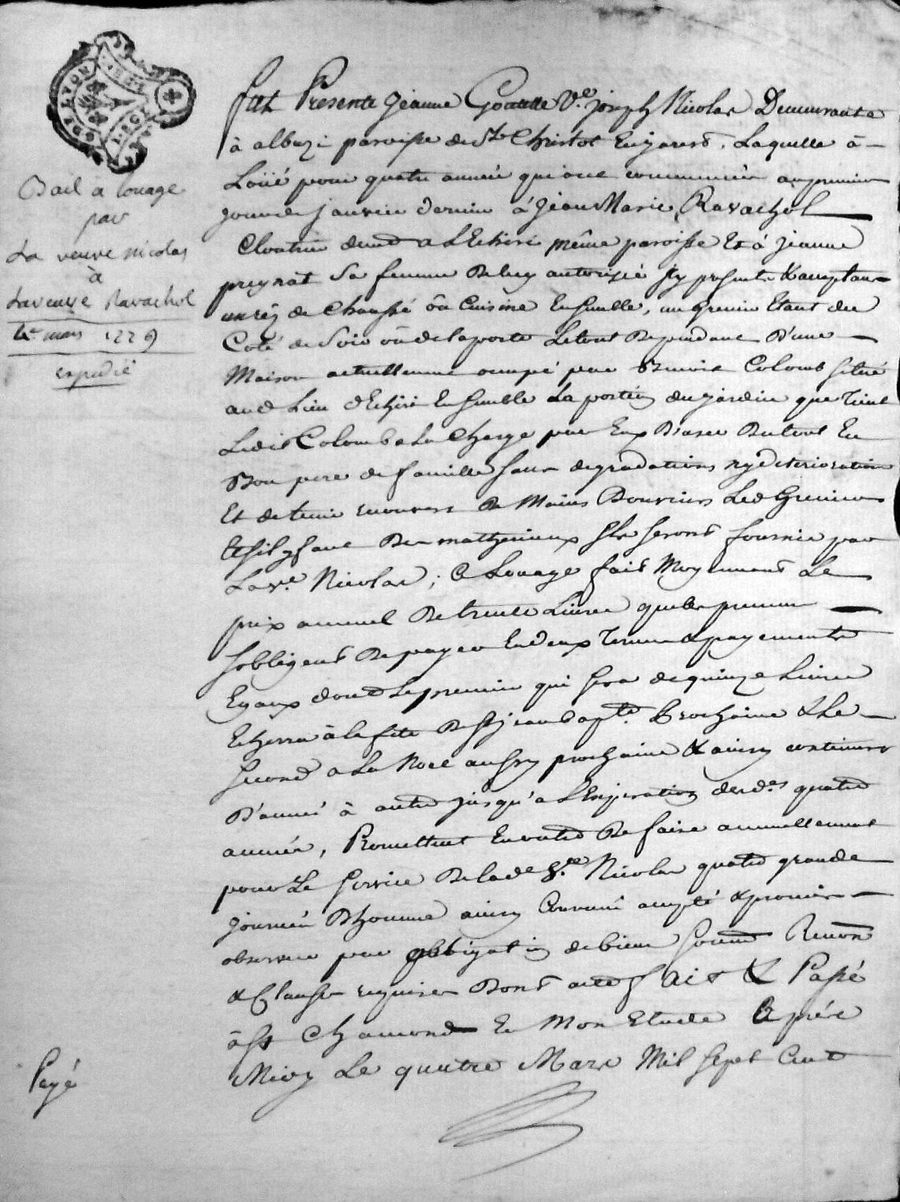 GEN. LYON
Bail a louage
par
La veuve nicolas
à
La veuve Ravachol
4e mars 1779
expedié
Fut Presente jeanne Goutelle Ve. joseph Nicolas Demeurante
à albuzi paroisse de St Christot En jarest, Laquelle à
Loüé pour quatre année qui ont commencées au premier
jour de janvier dernier à jean Marie Ravachol
Cloutier demt a L'Echere même paroisse Et à jeanne
preynat Sa femme De luy autorizée icy presents & acceptans
un réz de Chaussé ôu Cuisine Ensemble, un grenier Etant du
Coté de Soir ôu de la porte Le tout Dependant D'une
Maison actuellement occupé par Colomb Situé
aud Lieu d'Echere Ensemble La portion du jardin que Tient
Ledit Colomb a La Charge par Eux D'user Du tout En
Bon pere de famille Sans degradations ny deterioration
Et de tenir couvert De Mains D'ouvriers Led Grenier
Et s'il y faut Des mattereriaux ils Seront fournis par
La ve Nicolas; Ce Louage fait Moyennant Le
prix annuel De trente Livres que les preneurs
S'obligent De payer En deux Termes & payements
Egaux dont Le premier qui Sera de quinze Livres
Echerra à la fête De St jean Bapte. Prochaine & Le
Second a La Noel aussy prochaine & ainsy continuer
D'année à autre jusqu'a L'Expiration desdes quatre
années, Promettent En outre De faire annuellement
pour Le Service De lade Ve. Nicolas quatre grande
journées D'homme ainsy Convenu accepté & promis
observer par obligation de biens Soumis Renon
& Clauses requises Dont acte fait & Passé
à St Chamond En Mon Etude Après
Midy Le quatre Mars Mil Sept Cent
Payé